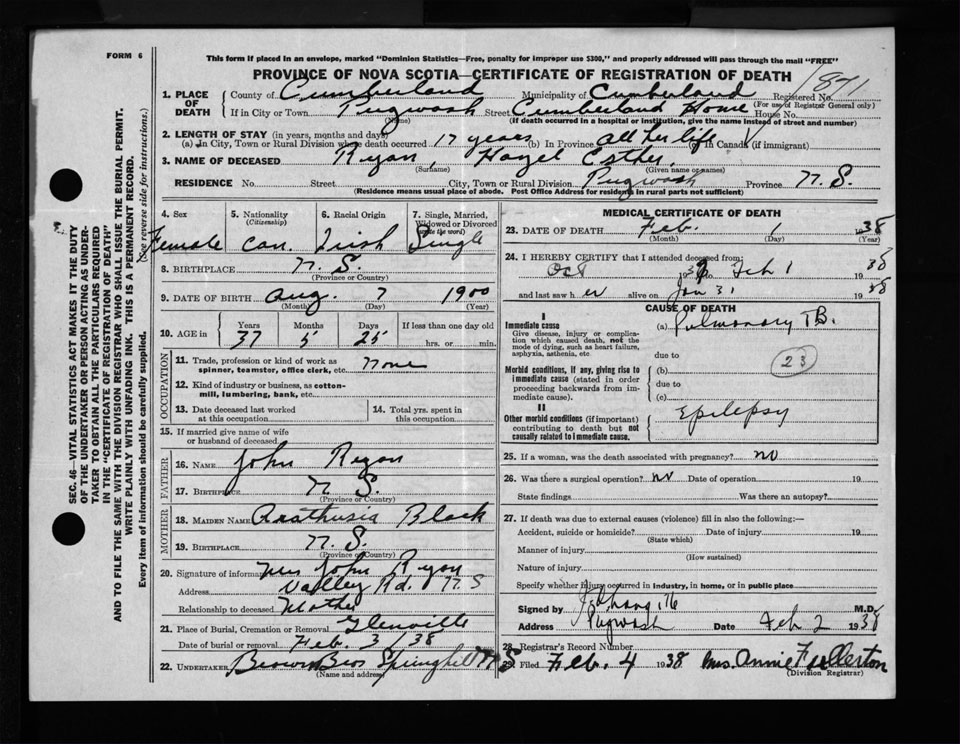 FORM 6
This form if placed in an envelope, marked "Dominion Statistics—Free, penalty for improper use $300," and properly addressed will pass through the mail "FREE"
PROVINCE OF NOVA SCOTIA—CERTIFICATE OF REGISTRATION OF DEATH
1. PLACE OF DEATH County of Cumberland Municipality of Cumberland Registered No. 871
(For use of Registrar General only)
If in City or Town Pugwash Street Cumberland Home House No.
(Name) (If death occurred in a hospital or institution, give the name instead of street and number)
2. LENGTH OF STAY (in years, months and days)
(a) In City, Town or Rural Division where death occurred 17 years (b) In Province all her life (c) In Canada (if immigrant)
3. NAME OF DECEASED Ryan, Hazel Esther.
(Surname) (Given name or names)
RESIDENCE No. Street City, Town or Rural Division Pugwash Province N. S.
(Residence means usual place of abode. Post Office Address for residents in rural parts not sufficient)
4. Sex Female
5. Nationality (Citizenship) Can.
6. Racial Origin Irish
7. Single, Married, Widowed or Divorced (write the word) Single
8. BIRTHPLACE N. S.
(Province or Country)
9. DATE OF BIRTH Aug. 7 1900
(Month) (Day) (Year)
10. AGE in Years 37 Months 5 Days 25 If less than one day old hrs. or min.
OCCUPATION
11. Trade, profession or kind of work as spinner, teamster, office clerk, etc. None
12. Kind of industry or business, as cotton-mill, lumbering, bank, etc.
13. Date deceased last worked at this occupation
14. Total yrs. spent in this occupation
15. If married give name of wife or husband of deceased
FATHER
16. NAME John Ryan
17. BIRTHPLACE N. S.
(Province or Country)
MOTHER
18. MAIDEN NAME Arathusia Black
19. BIRTHPLACE N. S.
(Province or Country)
20. Signature of informant Mrs John Ryan
Address Valley Rd. N. S
Relationship to deceased Mother
21. Place of Burial, Cremation or Removal Glenville
Date of burial or removal Feb. 3/38
22. UNDERTAKER Brown Bros Springhill N S
(Name and address)
MEDICAL CERTIFICATE OF DEATH
23. DATE OF DEATH Feb. 1 1938
(Month) (Day) (Year)
24. I HEREBY CERTIFY that I attended deceased from:
Oct 19 to Feb 1 1938
and last saw her alive on Jan 31 1938
CAUSE OF DEATH
I
Immediate cause
Give disease, injury or complication which caused death, not the mode of dying, such as heart failure, asphyxia, asthenia, etc
(a) Pulmonary TB.
due to
Morbid conditions, if any, giving rise to immediate cause (stated in order proceeding backwards from immediate cause).
(b)
23
due to
(c)
II
Other morbid conditions (if important) contributing to death but not causally related to immediate cause.
Epilepsy
25. If a woman, was the death associated with pregnancy? no
26. Was there a surgical operation? no Date of operation 19
State findings Was there an autopsy?
27. If death was due to external causes (violence) fill in also the following:—
Accident, suicide or homicide? Date of injury 19
(State which)
Manner of injury
(How sustained)
Nature of injury
Specify whether injury occurred in industry, in home, or in public place
Signed by M.D.
Address Pugwash Date Feb 2 1938
28. Registrar's Record Number
29. Filed Feb. 4 1938 Mrs. Annie Fullerton
(Division Registrar)
SEC. 46—VITAL STATISTICS ACT MAKES IT THE DUTY
OF THE UNDERTAKER OR PERSON ACTING AS UNDERTAKER TO OBTAIN ALL THE PARTICULARS REQUIRED
IN THE "CERTIFICATE OF REGISTRATION OF DEATH"
AND TO FILE THE SAME WITH THE DIVISION REGISTRAR WHO SHALL ISSUE THE BURIAL PERMIT.
WRITE PLAINLY WITH UNFADING INK. THIS IS A PERMANENT RECORD.
Every item of information should be carefully supplied. (See reverse side for instructions.)